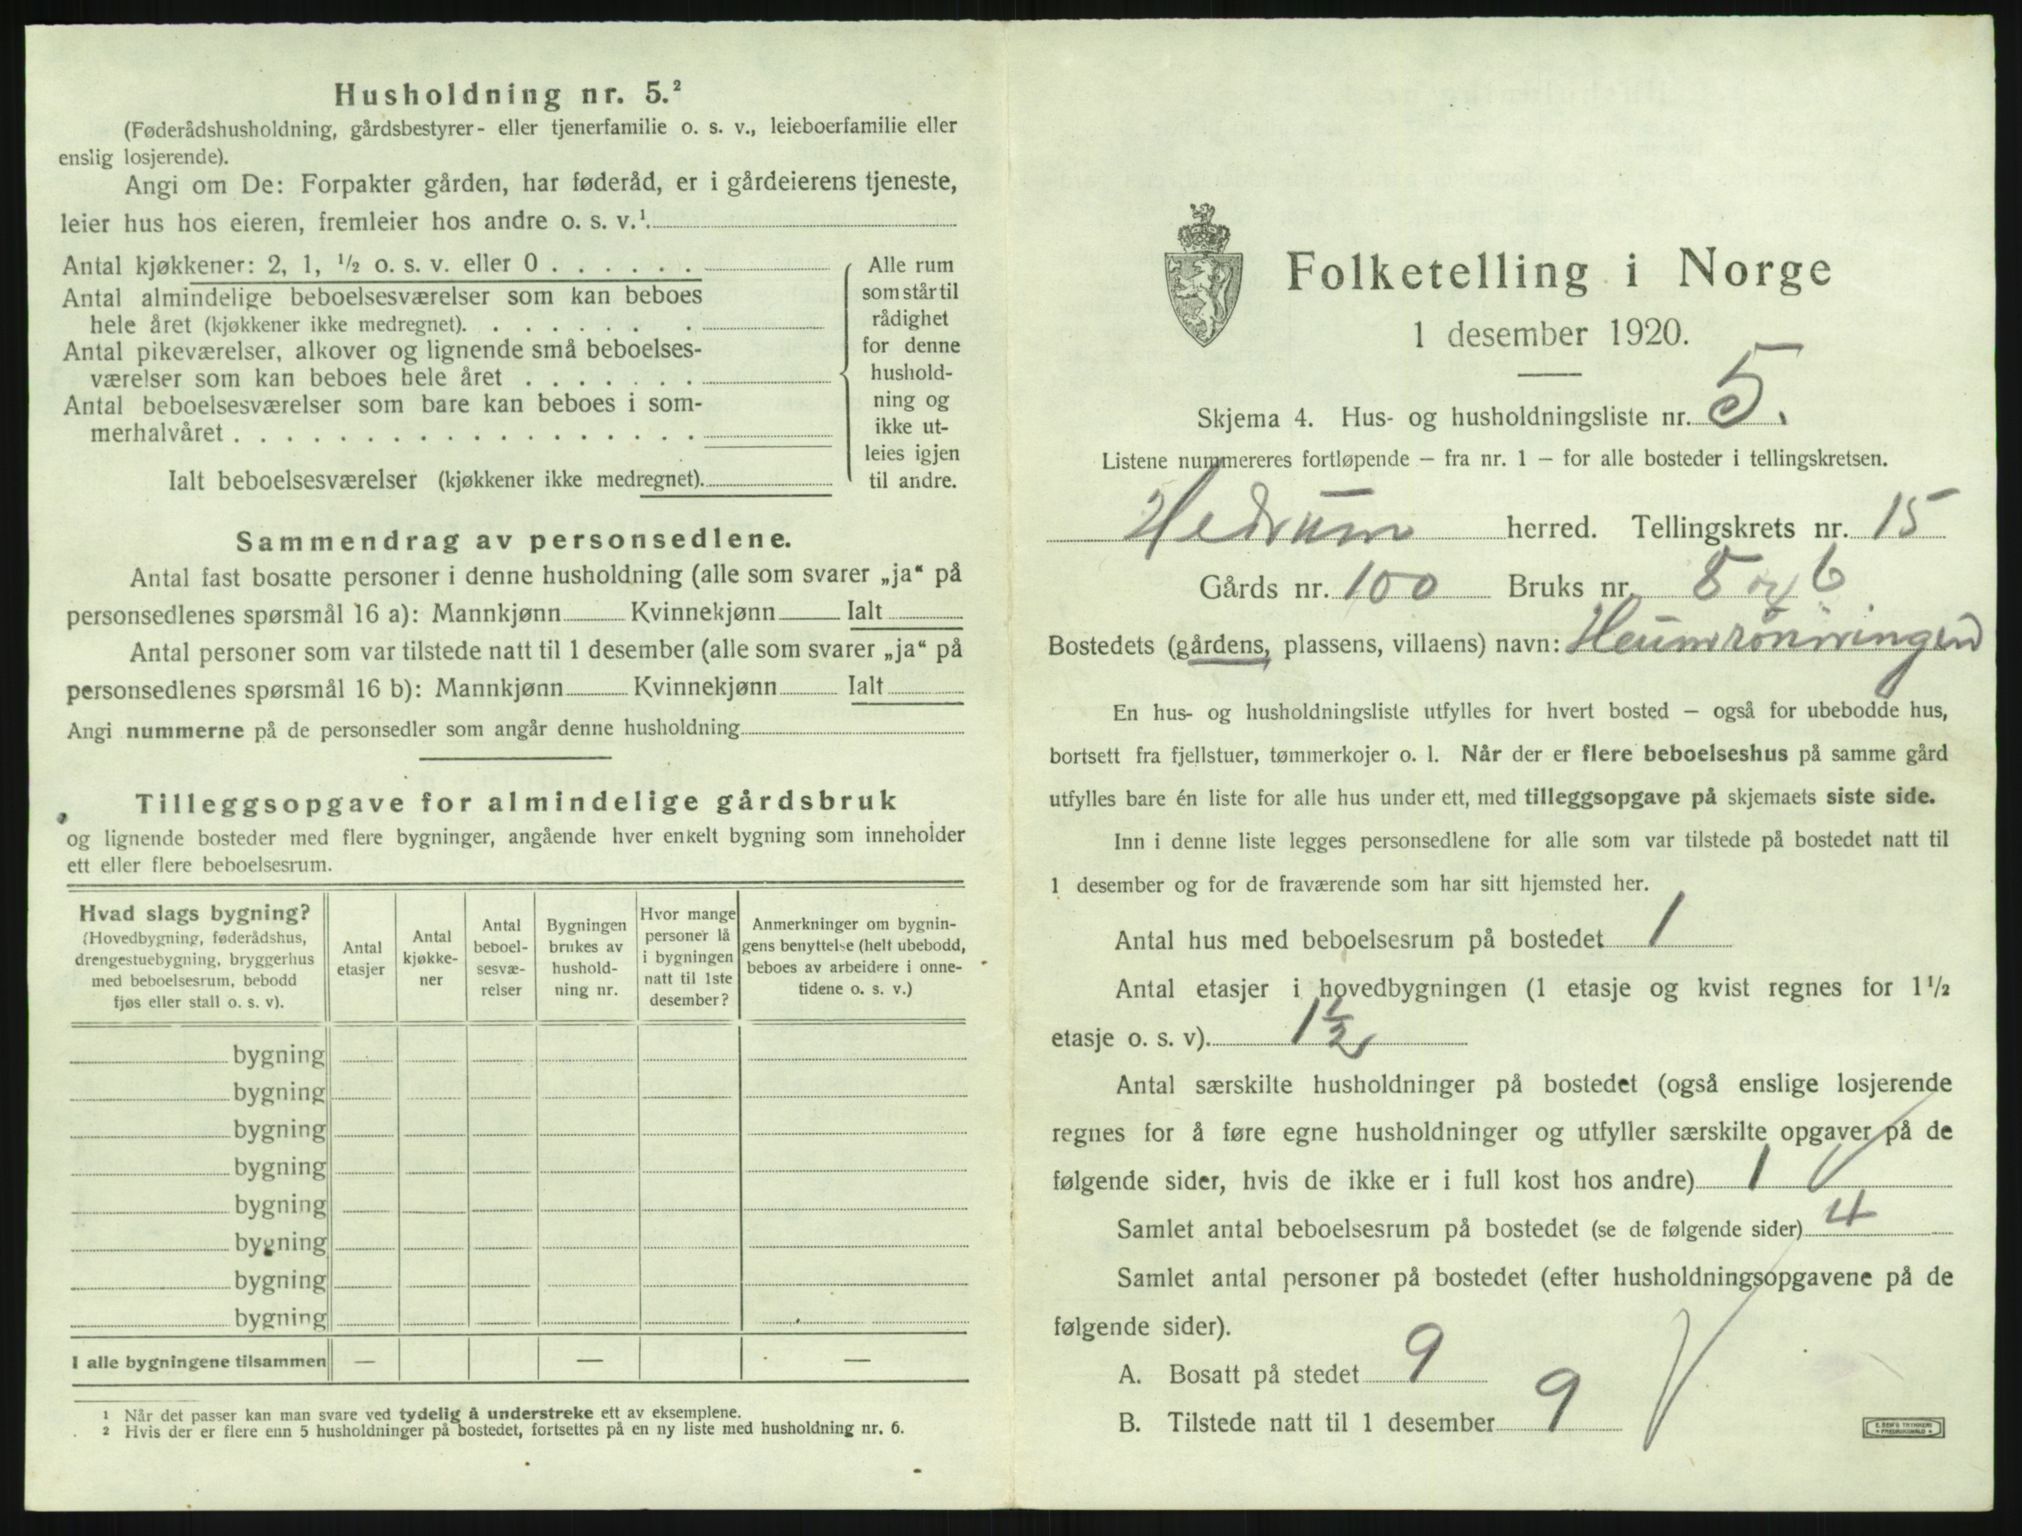 Husholdning nr. 5.²
(Føderådshusholdning, gårdsbestyrer- eller tjenerfamilie o. s. v., leieboerfamilie eller
enslig losjerende).
Angi om De: Forpakter gården, har føderåd, er i gårdeierens tjeneste,
leier hus hos eieren, fremleier hos andre o. s. v.¹
Antal kjøkkener: 2, 1, ½ o. s. v. eller 0 . . . . . .
Antal almindelige beboelsesværelser som kan beboes
hele året (kjøkkener ikke medregnet). . . . . . . .
Antal pikeværelser, alkover og lignende små beboelses-
værelser som kan beboes hele året . . . . . . .
Antal beboelsesværelser som bare kan beboes i som-
merhalvåret . . . . . . . . . . . . . . . . . .
Ialt beboelsesværelser (kjøkkener ikke medregnet).
Alle rum
som står til
rådighet
for denne
hushold-
ning og
ikke ut-
leies igjen
til andre.
Sammendrag av personsedlene.
Antal fast bosatte personer i denne husholdning (alle som svarer „ja“ på
personsedlenes spørsmål 16 a): Mannkjønn Kvinnekjønn Ialt
Antal personer som var tilstede natt til 1 desember (alle som svarer „ja“ på
personsedlenes spørsmål 16 b): Mannkjønn Kvinnekjønn Ialt
Angi nummerne på de personsedler som angår denne husholdning
Tilleggsopgave for almindelige gårdsbruk
og lignende bosteder med flere bygninger, angående hver enkelt bygning som inneholder
ett eller flere beboelsesrum.
Hvad slags bygning?
(Hovedbygning, føderådshus,
drengestuebygning, bryggerhus
med beboelsesrum, bebodd
fjøs eller stall o. s. v).
Antal
etasjer
Antal
kjøkke-
ner
Antal
beboel-
sesvæ-
relser
Bygningen
brukes av
hushold-
ning nr.
Hvor mange
personer lå
i bygningen
natt til 1ste
desember?
Anmerkninger om bygnin-
gens benyttelse (helt ubebodd,
beboes av arbeidere i onne-
tidene o. s. v.)
bygning
bygning
bygning
bygning
bygning
bygning
bygning
bygning
I alle bygningene tilsammen — — —
¹ Når det passer kan man svare ved tydelig å understreke ett av eksemplene.
² Hvis der er flere enn 5 husholdninger på bostedet, fortsettes på en ny liste med husholdning nr. 6.
Folketelling i Norge
1 desember 1920.
Skjema 4. Hus- og husholdningsliste nr. 5.
Listene nummereres fortløpende – fra nr. 1 – for alle bosteder i tellingskretsen.
Hedrum herred. Tellingskrets nr. 15
Gårds nr. 100 Bruks nr. 5 og 6
Bostedets (gårdens, plassens, villaens) navn: Heumrönningen
En hus- og husholdningsliste utfylles for hvert bosted – også for ubebodde hus,
bortsett fra fjellstuer, tømmerkojer o. l. Når der er flere beboelseshus på samme gård
utfylles bare én liste for alle hus under ett, med tilleggsopgave på skjemaets siste side.
Inn i denne liste legges personsedlene for alle som var tilstede på bostedet natt til
1 desember og for de fraværende som har sitt hjemsted her.
Antal hus med beboelsesrum på bostedet 1
Antal etasjer i hovedbygningen (1 etasje og kvist regnes for 1½
etasje o. s. v). 1½
Antal særskilte husholdninger på bostedet (også enslige losjerende
regnes for å føre egne husholdninger og utfyller særskilte opgaver på de
følgende sider, hvis de ikke er i full kost hos andre) 1
Samlet antal beboelsesrum på bostedet (se de følgende sider) 4
Samlet antal personer på bostedet (efter husholdningsopgavene på de
følgende sider).
A. Bosatt på stedet 9
B. Tilstede natt til 1 desember 9